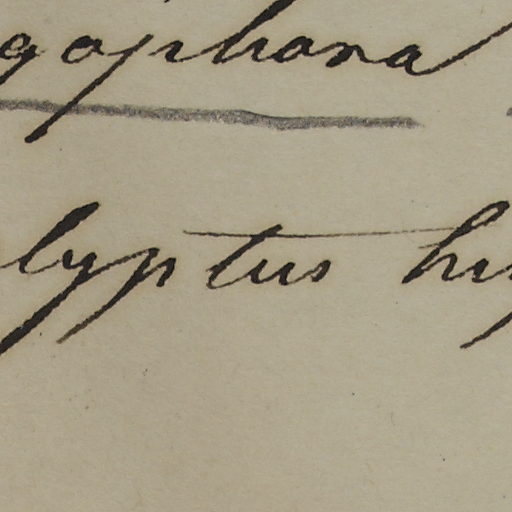 gophona
lyptus hy